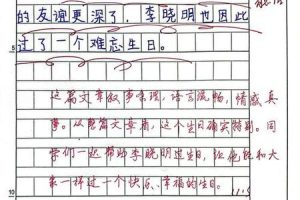 的友谊更深了,李晓明也因此
过了一个难忘生日。
5
这篇文章叙事条理,语言流畅,情感真
挚。从整篇文章看,这个生日确实特别。同
学们一起帮助李晓明过生日,让他能和大
家一样过一个快乐、幸福的生日。
10